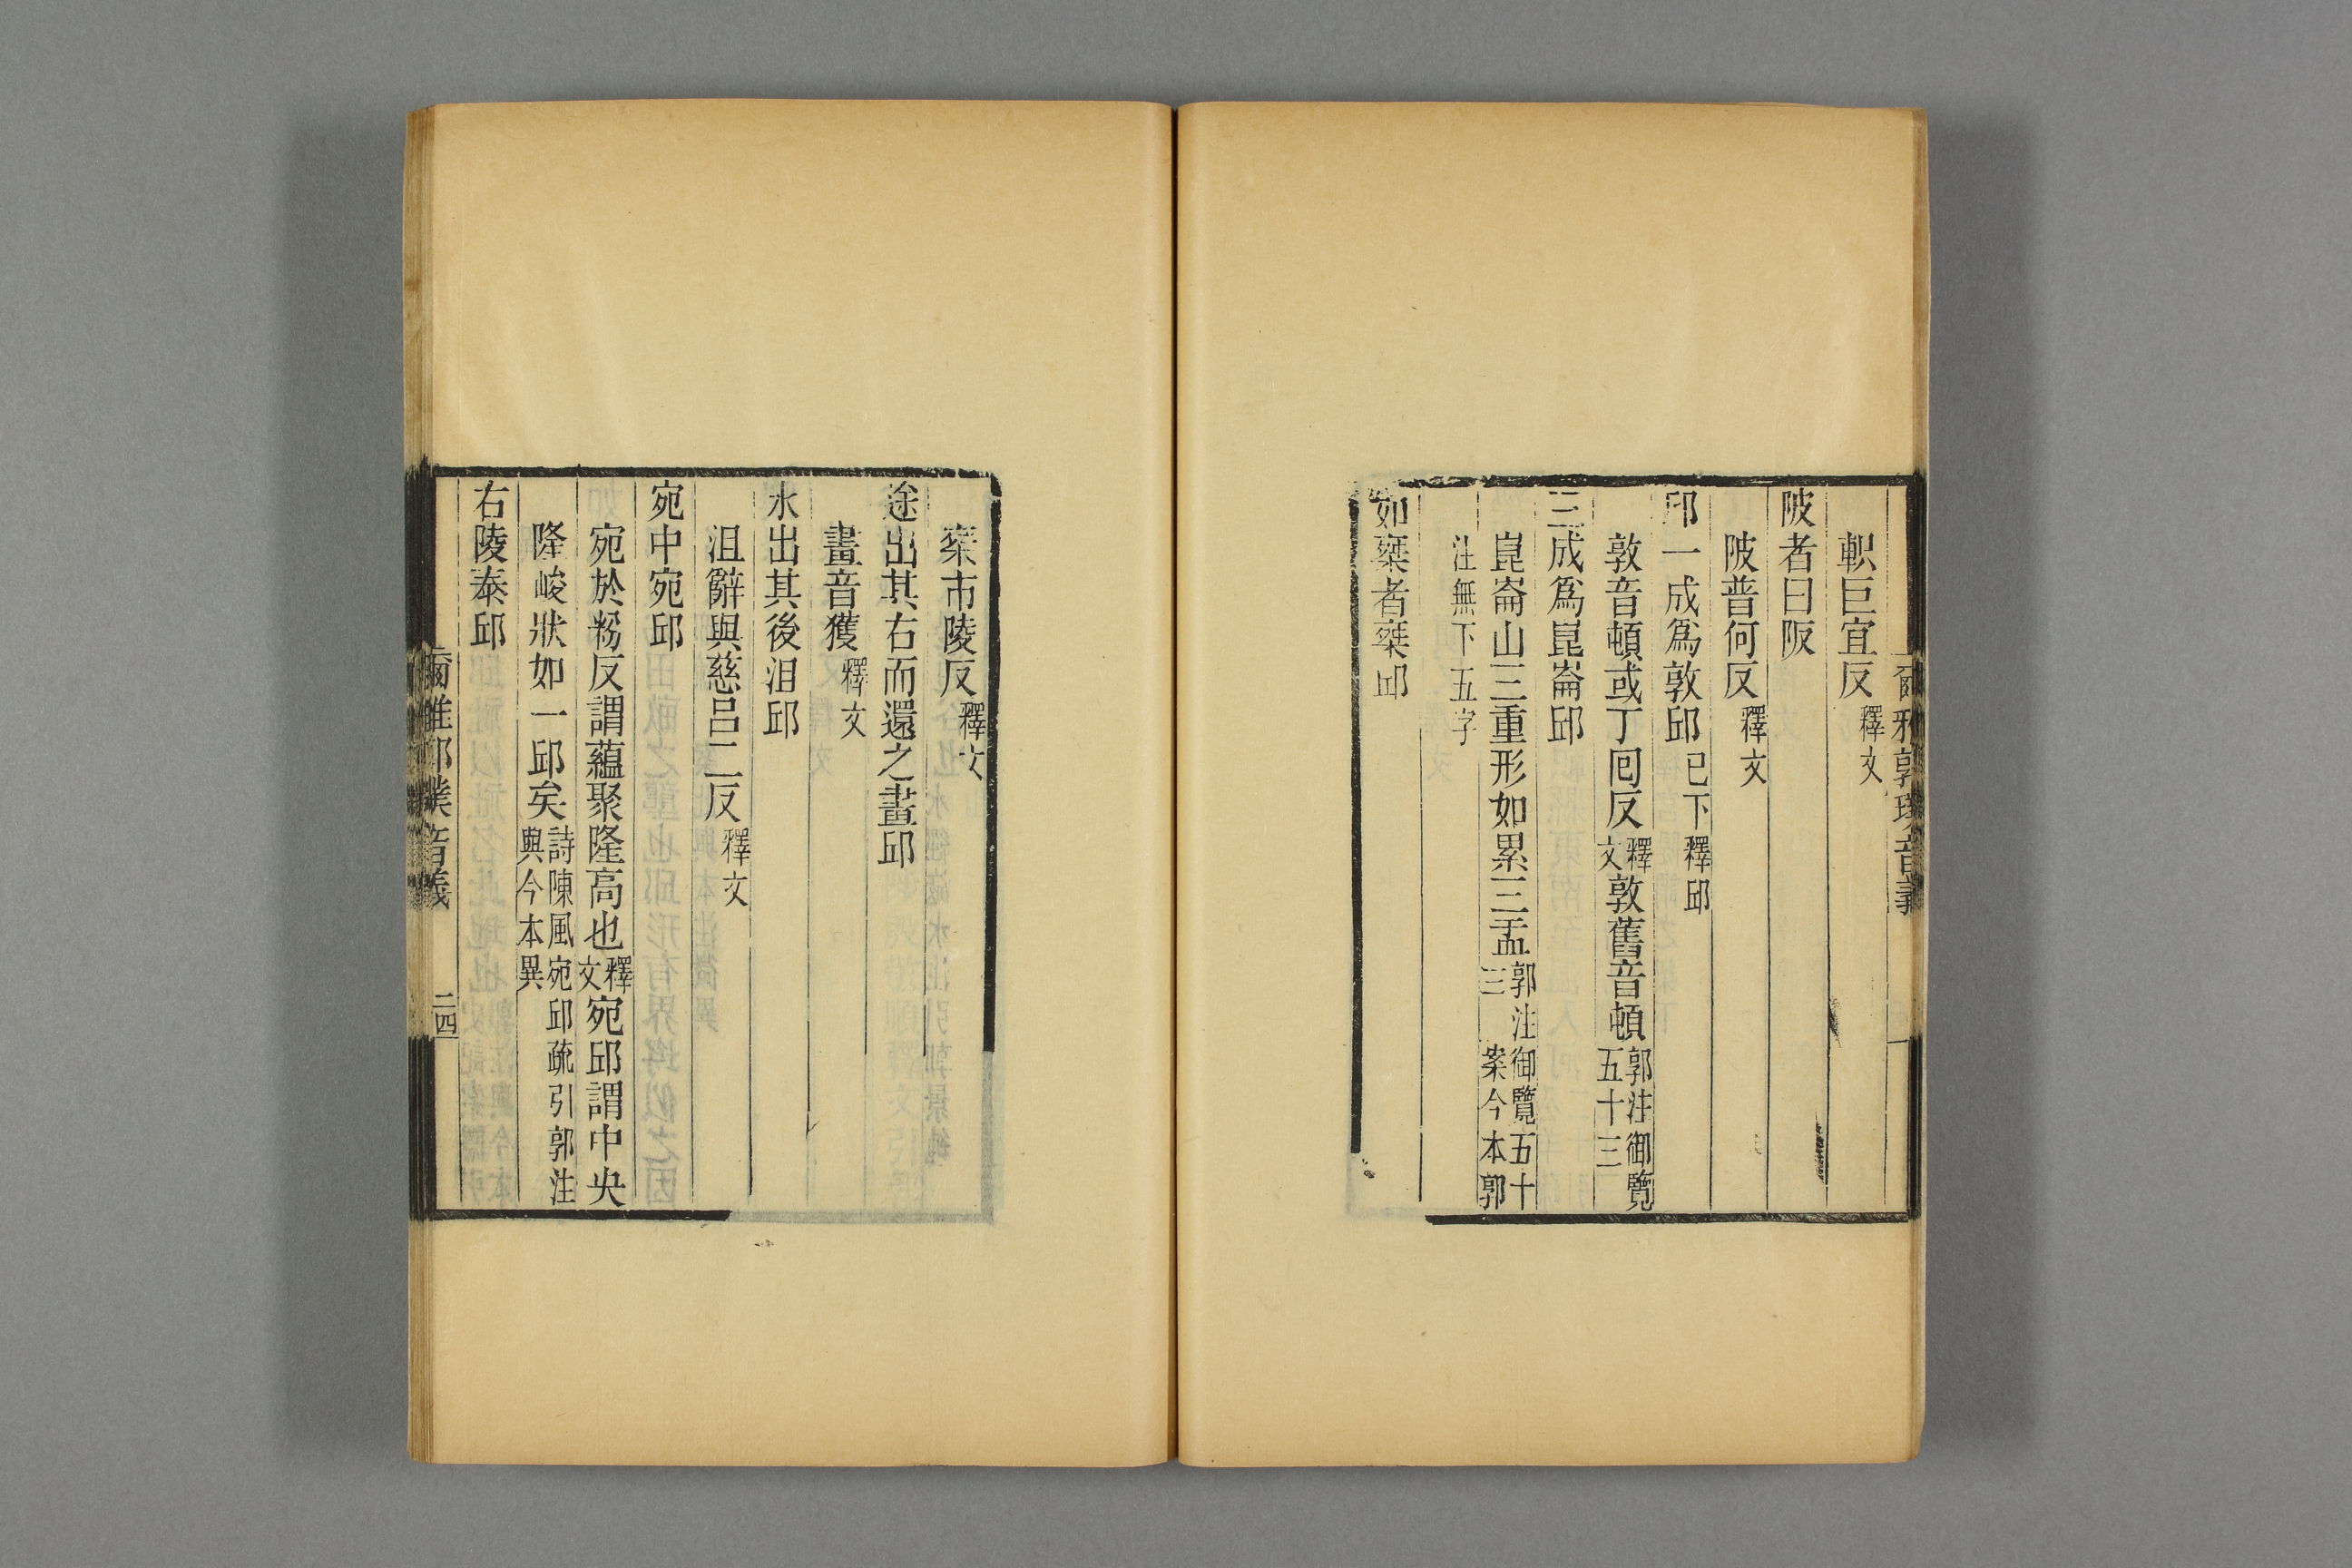 爾雅郭璞音義
軹巨宜反釋文
陂者曰阪
陂普何反釋文
邱一成爲敦邱已下釋邱
敦音頓或丁回反釋文敦舊音頓郭注御覽五十三
三成爲崑崙邱
崑崙山三重形如累三盂郭注御覽五十三 案今本郭
注無下五字
如椉者椉邱
椉市陵反釋文
途出其右而還之畫邱
畫音獲釋文
水出其後沮邱
沮辭與慈呂二反釋文
宛中宛邱
宛於粉反謂蘊聚隆高也釋文宛邱謂中央
隆峻狀如一邱矣詩陳風宛邱疏引郭注與今本異
右陵泰邱
爾雅郭璞音義 二四